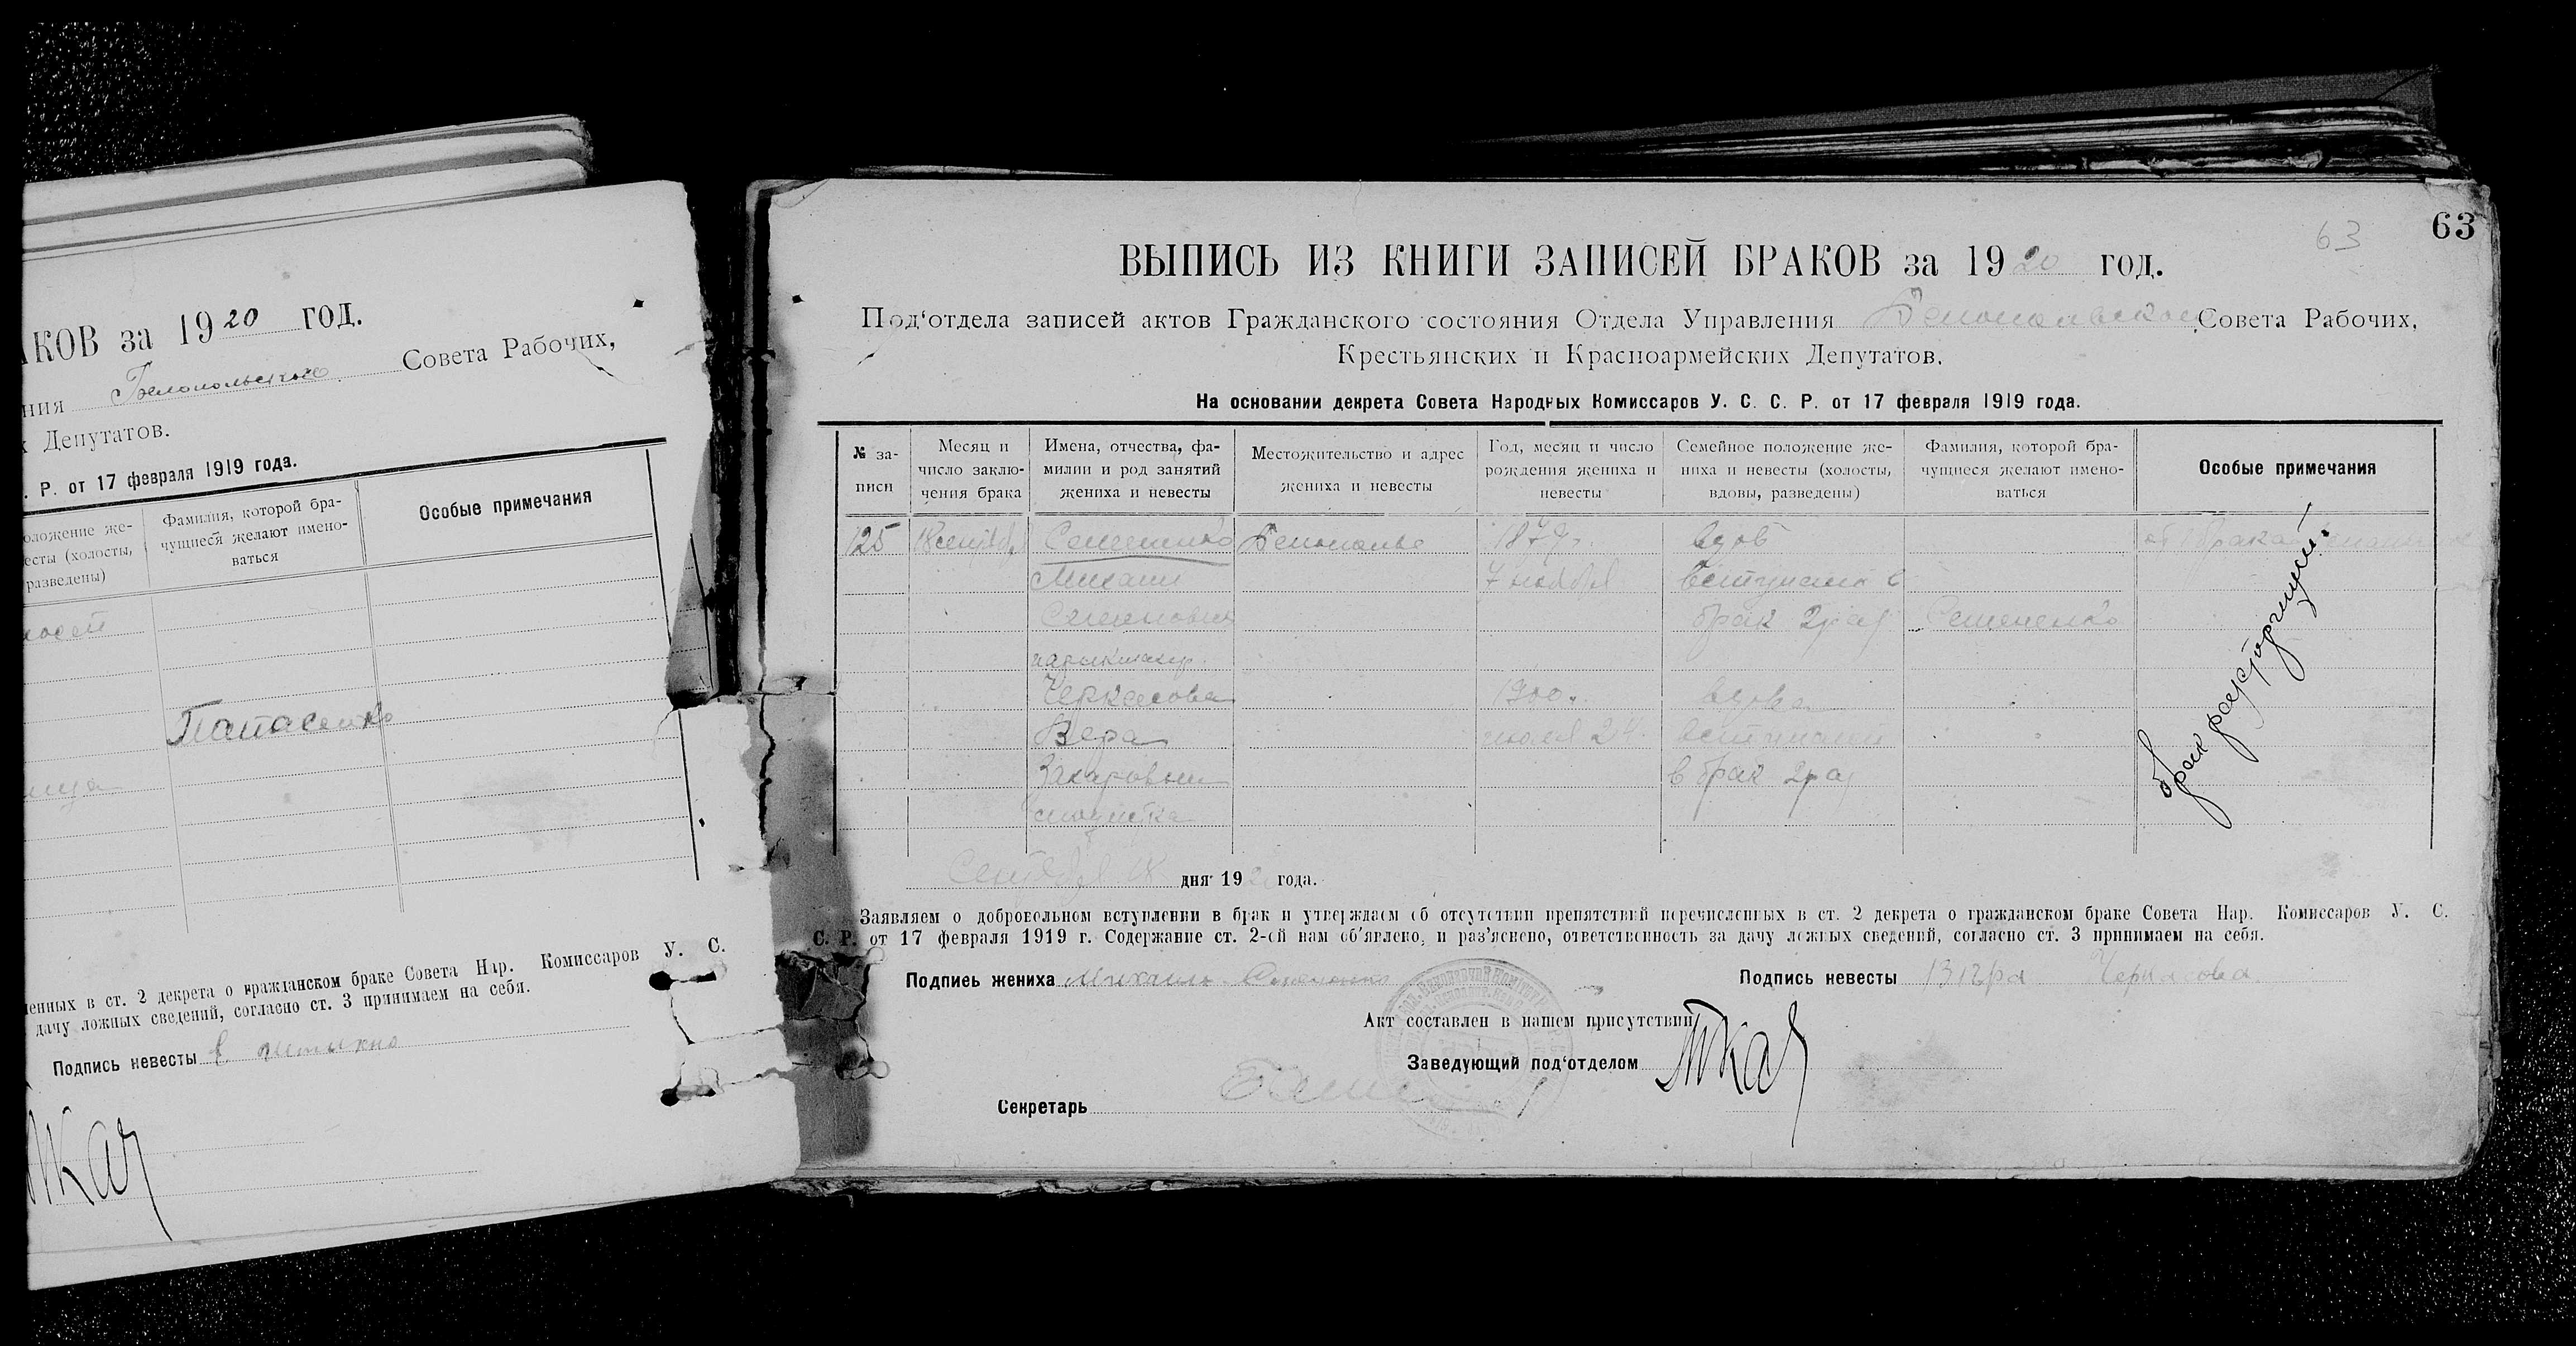 АКОВ за 1920 год.
ния Белопольского Совета Рабочих,
х Депутатов.
. Р. от 17 февраля 1919 года.
оложение же-
есты (холосты,
разведены)
Фамилия, которой бра-
чущиеся желают имено-
ваться
Особые примечания
енных в ст. 2 декрета о гражданском браке Совета Нар. Комиссаров У. С.
дачу ложных сведений, согласно ст. 3 принимаем на себя.
Подпись невесты
63
63
ВЫПИСЬ ИЗ КНИГИ ЗАПИСЕЙ БРАКОВ за 1920 год.
Под‘отдела записей актов Гражданского состояния Отдела Управления Белопольского Совета Рабочих,
Крестьянских и Красноармейских Депутатов.
На основании декрета Совета Народных Комиссаров У. С. С. Р. от 17 февраля 1919 года.
№ за-
писи
Месяц и
число заклю-
чения брака
Имена, отчества, фа-
милии и род занятий
жениха и невесты
Местожительство и адрес
жениха и невесты
Год, месяц и число
рождения жениха и
невесты
Семейное положение же-
ниха и невесты (холосты,
вдовы, разведены)
Фамилия, которой бра-
чущиеся желают имено-
ваться
Особые примечания
125 18 сентября Семененко Белополье вдов
Михаил 7 ноября вступает в
Семенович брак 2 раз Семененко
парикмахер
Черкасова 1900 г. вдова
Вера июля 24 вступает
Захаровна в брак 2 раз
модистка
брак расторгнут
Сентября 18 дня 192 года.
Заявляем о добровольном вступлении в брак и утверждаем об отсутствии препятствий перечисленных в ст. 2 декрета о гражданском браке Совета Нар. Комиссаров У. С.
С. Р. от 17 февраля 1919 г. Содержание ст. 2-ой нам об‘явлено, и раз‘яснено, ответственность за дачу ложных сведений, согласно ст. 3 принимаем на себя.
Подпись жениха Михаил Семененко Подпись невесты Вера Черкасова
Акт составлен в нашем присутствии
Заведующий под‘отделом
Секретарь